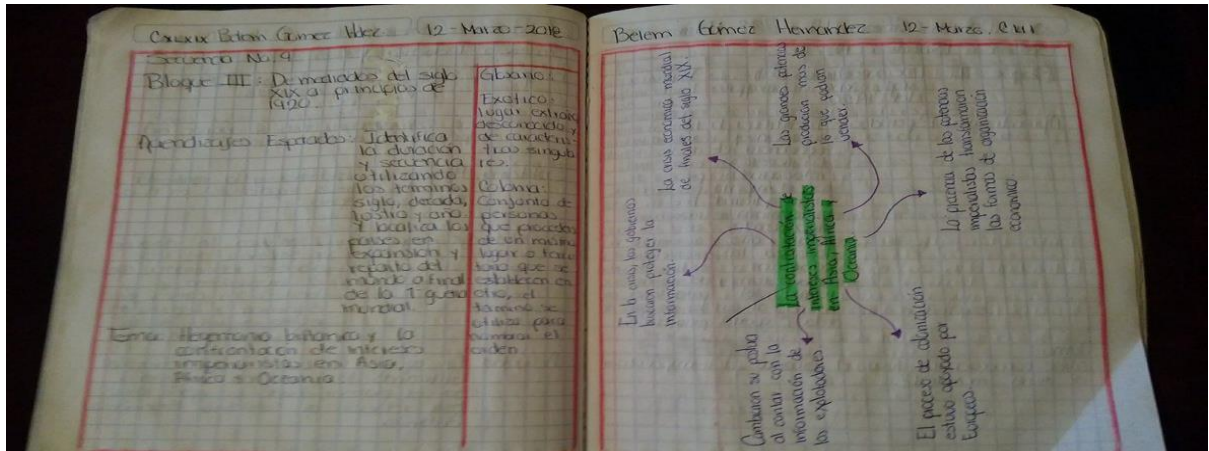 Belem Gómez Hdez 12-Marzo-2018
Secuencia No. 9
Bloque III: De mediados del siglo
XIX a principios de
1920.
Aprendizajes Esperados: Identifica
la duración
y secuencia
utilizando
los términos
siglo, decada,
lustro y año
y localiza los
paises en
expansión y
reparto del
mundo a final
de la 1 guerra
mundial.
Tema: Hegemonia britanica y la
confrontación de intereses
imperialistas en Asia,
Africa y Oceania
Glosario:
Exotico:
lugar extraño
desconocida y
de caracteris-
ticas singula
res.
Colonia:
Conjunto de
personas
que proceden
de un mismo
lugar o
que se
establecen en
otro, el
termino se
utiliza para
nombrar el
orden.
Belem Gómez Hernández 12-Marzo.
La confrontación de
intereses imperialistas
en Asia, Africa y
Oceania
La crisis económica mundial
de finales del siglo XIX.
Las grandes potencias
producian mas de
lo que podian
vender.
La presencia de las potencias
imperialistas transformaron
las formas de organización
económica
El proceso de colonización
estuvo apoyado por
Europeos.
Cambiaron su postura
al contar con la
información de
los exploladores
En la crisis, los gobiernos
buscaron proteger la
información.